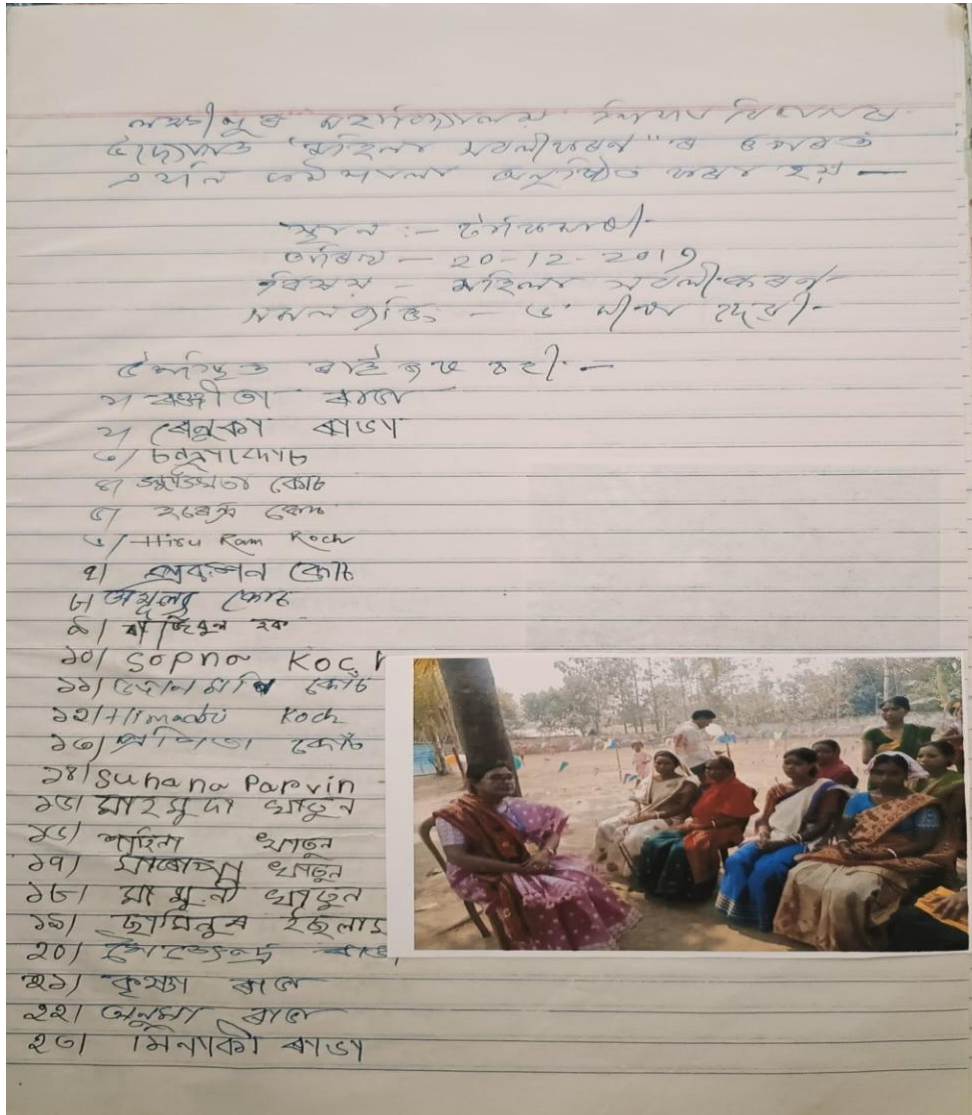 লক্ষীপুৰ মহাবিদ্যালয় শিক্ষা বিভাগৰ
উদ্যোগত "মহিলা সবলীকৰণ"ৰ ওপৰত
এখনি কৰ্মশালা অনুষ্ঠিত কৰা হয় —
স্থান :-
তাৰিখ – 20-12-2019
বিষয় – মহিলা সবলীকৰণ
সমল ব্যক্তি – ড°
উপস্থিত ৰাইজৰ চহী —
১/ ৰঞ্জীতা ৰাভা
২/ ৰেনুকা ৰাভা
৩/ চন্দ্ৰা কোচ
৪/ কোচ
৫/ হৰেন্দ্ৰ কোচ
৬/ Hisu Ram Koch
৭/ প্ৰকাশন কোচ
৮/ অমূল্য কোচ
৯/ হক
১০/ Sopna Koch
১১/ কোচ
১২/ Himadri Koch
১৩/ কোচ
১৪/ Suhana Parvin
১৫/ মাহমুদা খাতুন
১৬/ শাহিনা খাতুন
১৭/ খাতুন
১৮/ মামুনী খাতুন
১৯/ জামিনুৰ ইছলাম
২০/ ৰাভা
২১/ কৃষ্ণা ৰাভা
২২/ অনুমা ৰাভা
২৩/ মিনাকী ৰাভা